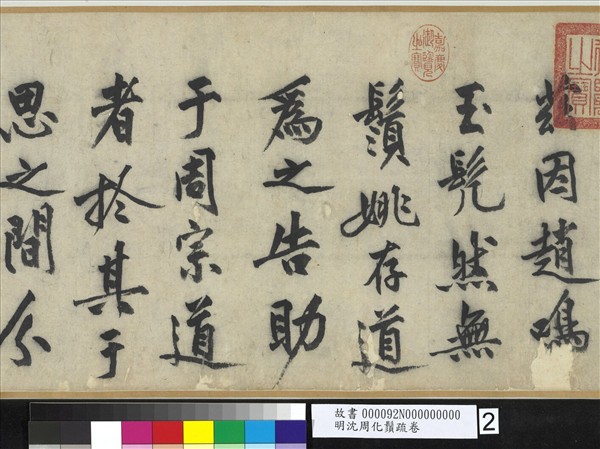 茲因趙鳴
玉髠然無
鬚姚存道
爲之告助
于周宗道
者於其于
思之間分
嘉慶御覽之寶
故書 000092N000000000
明沈周化鬚疏卷
2